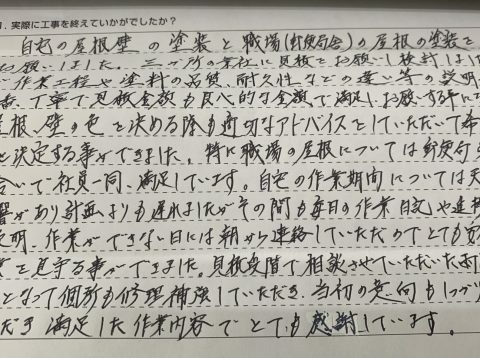 1. 実際に工事を終えていかがでしたか?
自宅の屋根壁の塗装と職場(郵便局舎)の屋根の塗装を
お願いしました。三ヶ所の業社に見積をお願いし検討しました
作業工程や塗料の品質、耐久性などの違い等の説明
丁寧で見積金額も良心的な金額で満足しお願いする事に
屋根、壁の色を決める際も適切なアドバイスをしていただいて希
を決定する事ができました。特に職場の屋根については郵便局
合いで社員一同、満足しています。自宅の作業期間については天
響があり計画よりも遅れましたがその間も毎日の作業日記や進捗
説明、作業ができない日には朝から連絡していただのでとても
を見守る事ができました。見積段階で相談させていただいた
となって個所も修理補強していただき、当初の意向もしっかり
だき満足した作業内容でとても感謝しています。